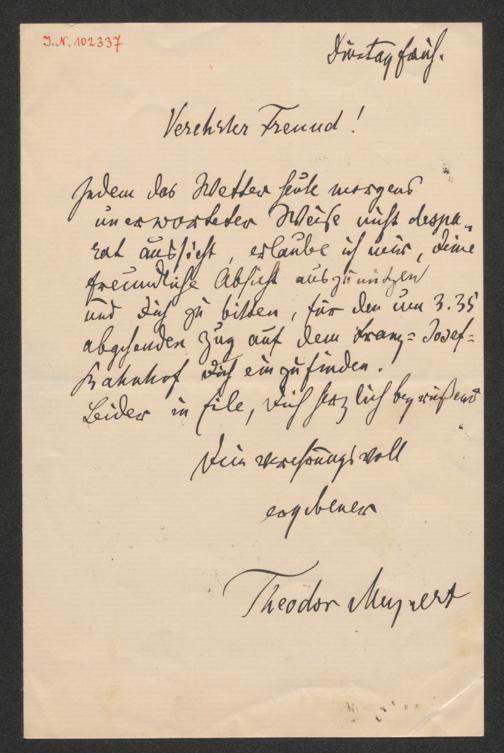 J.N. 102337
Dinstag früh.
Verehrter Freund!
Indem das Wetter heute morgens
unerwarteter Weise nicht despe-
rat aussieht, erlaube ich mir, Deine
freundliche Absicht auszunützen
und Dich zu bitten, für den um 3.35
abgehenden Zug auf dem Franz-Josef-
Bahnhof Dich einzufinden.
Leider in Eile, Dich herzlich begrüßend
Dein verehrungsvoll
ergebener
Theodor Meynert